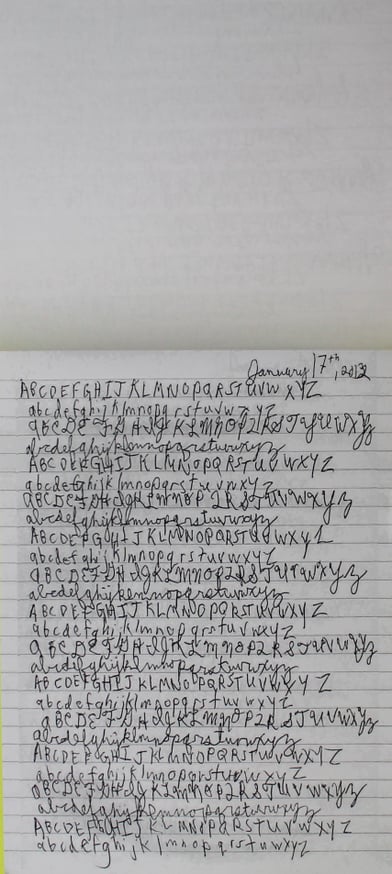 January 17th, 2012
ABCDEFGHIJKLMNOPQRSTUVWXYZ
abcdefghijklmnopqrstuvwxyz
ABCDEFGHIJKLMNOPQRSTUVWXYZ
abcdefghijklmnopqrstuvwxyz
ABCDEFGHIJKLMNOPQRSTUVWXYZ
abcdefghijklmnopqrstuvwxyz
ABCDEFGHIJKLMNOPQRSTUVWXYZ
abcdefghijklmnopqrstuvwxyz
ABCDEFGHIJKLMNOPQRSTUVWXYZ
abcdefghijklmnopqrstuvwxyz
ABCDEFGHIJKLMNOPQRSTUVWXYZ
abcdefghijklmnopqrstuvwxyz
ABCDEFGHIJKLMNOPQRSTUVWXYZ
abcdefghijklmnopqrstuvwxyz
ABCDEFGHIJKLMNOPQRSTUVWXYZ
abcdefghijklmnopqrstuvwxyz
ABCDEFGHIJKLMNOPQRSTUVWXYZ
abcdefghijklmnopqrstuvwxyz
ABCDEFGHIJKLMNOPQRSTUVWXYZ
abcdefghijklmnopqrstuvwxyz
ABCDEFGHIJKLMNOPQRSTUVWXYZ
abcdefghijklmnopqrstuvwxyz
ABCDEFGHIJKLMNOPQRSTUVWXYZ
abcdefghijklmnopqrstuvwxyz
ABCDEFGHIJKLMNOPQRSTUVWXYZ
abcdefghijklmnopqrstuvwxyz